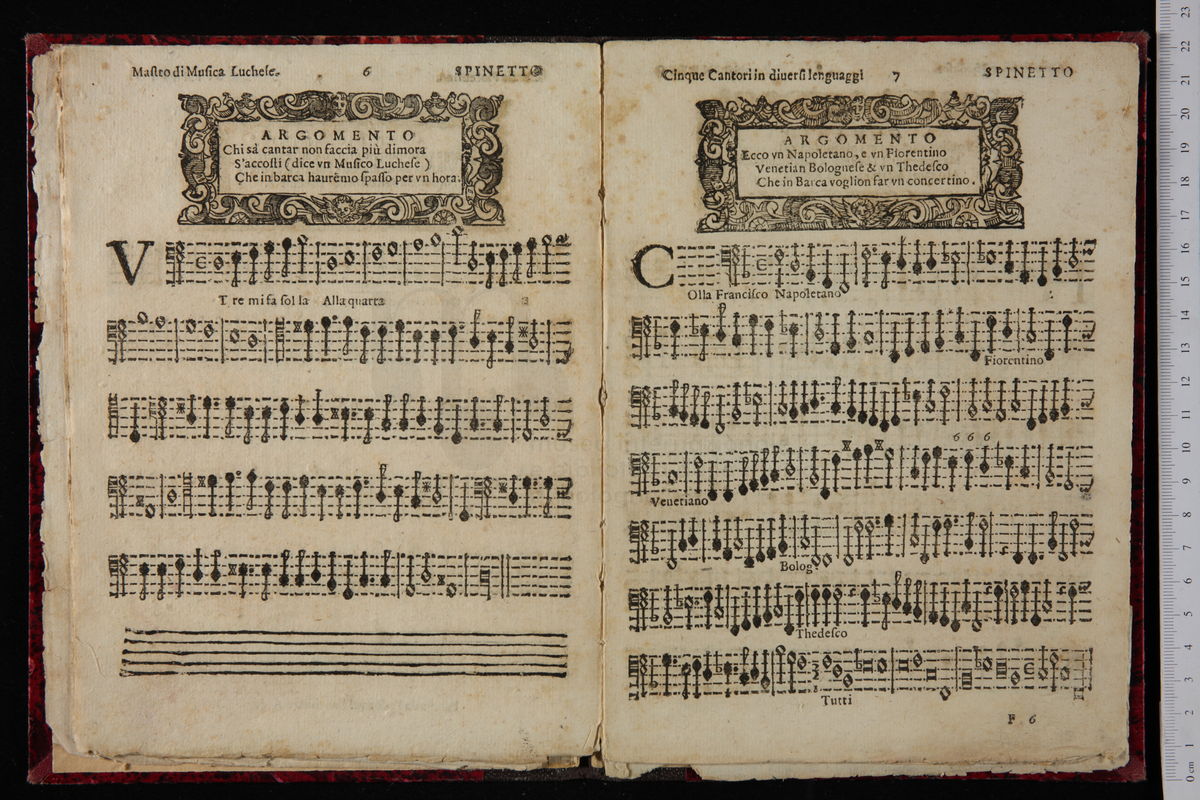 Mastro di Musica Luchese. 6 SPINETTO
ARGOMENTO
Chi sà cantar non faccia più dimora
S'accosti (dice vn Musico Luchese)
Che in barca haurémo spasso per vn hora.
V
T re mi fa sol la Alla quarta
Cinque Cantori in diuersi lenguaggi 7 SPINETTO
ARGOMENTO
Ecco vn Napoletano, e vn Fiorentino
Venetian Bolognese & vn Thedesco
Che in Barca voglion far vn concertino.
C
Olla Francisco Napoletano
Fiorentino
6 6 6
Venetiano
Bolog.
Thedesco
Tutti
F 6
0 cm 1 2 3 4 5 6 7 8 9 10 11 12 13 14 15 16 17 18 19 20 21 22 23